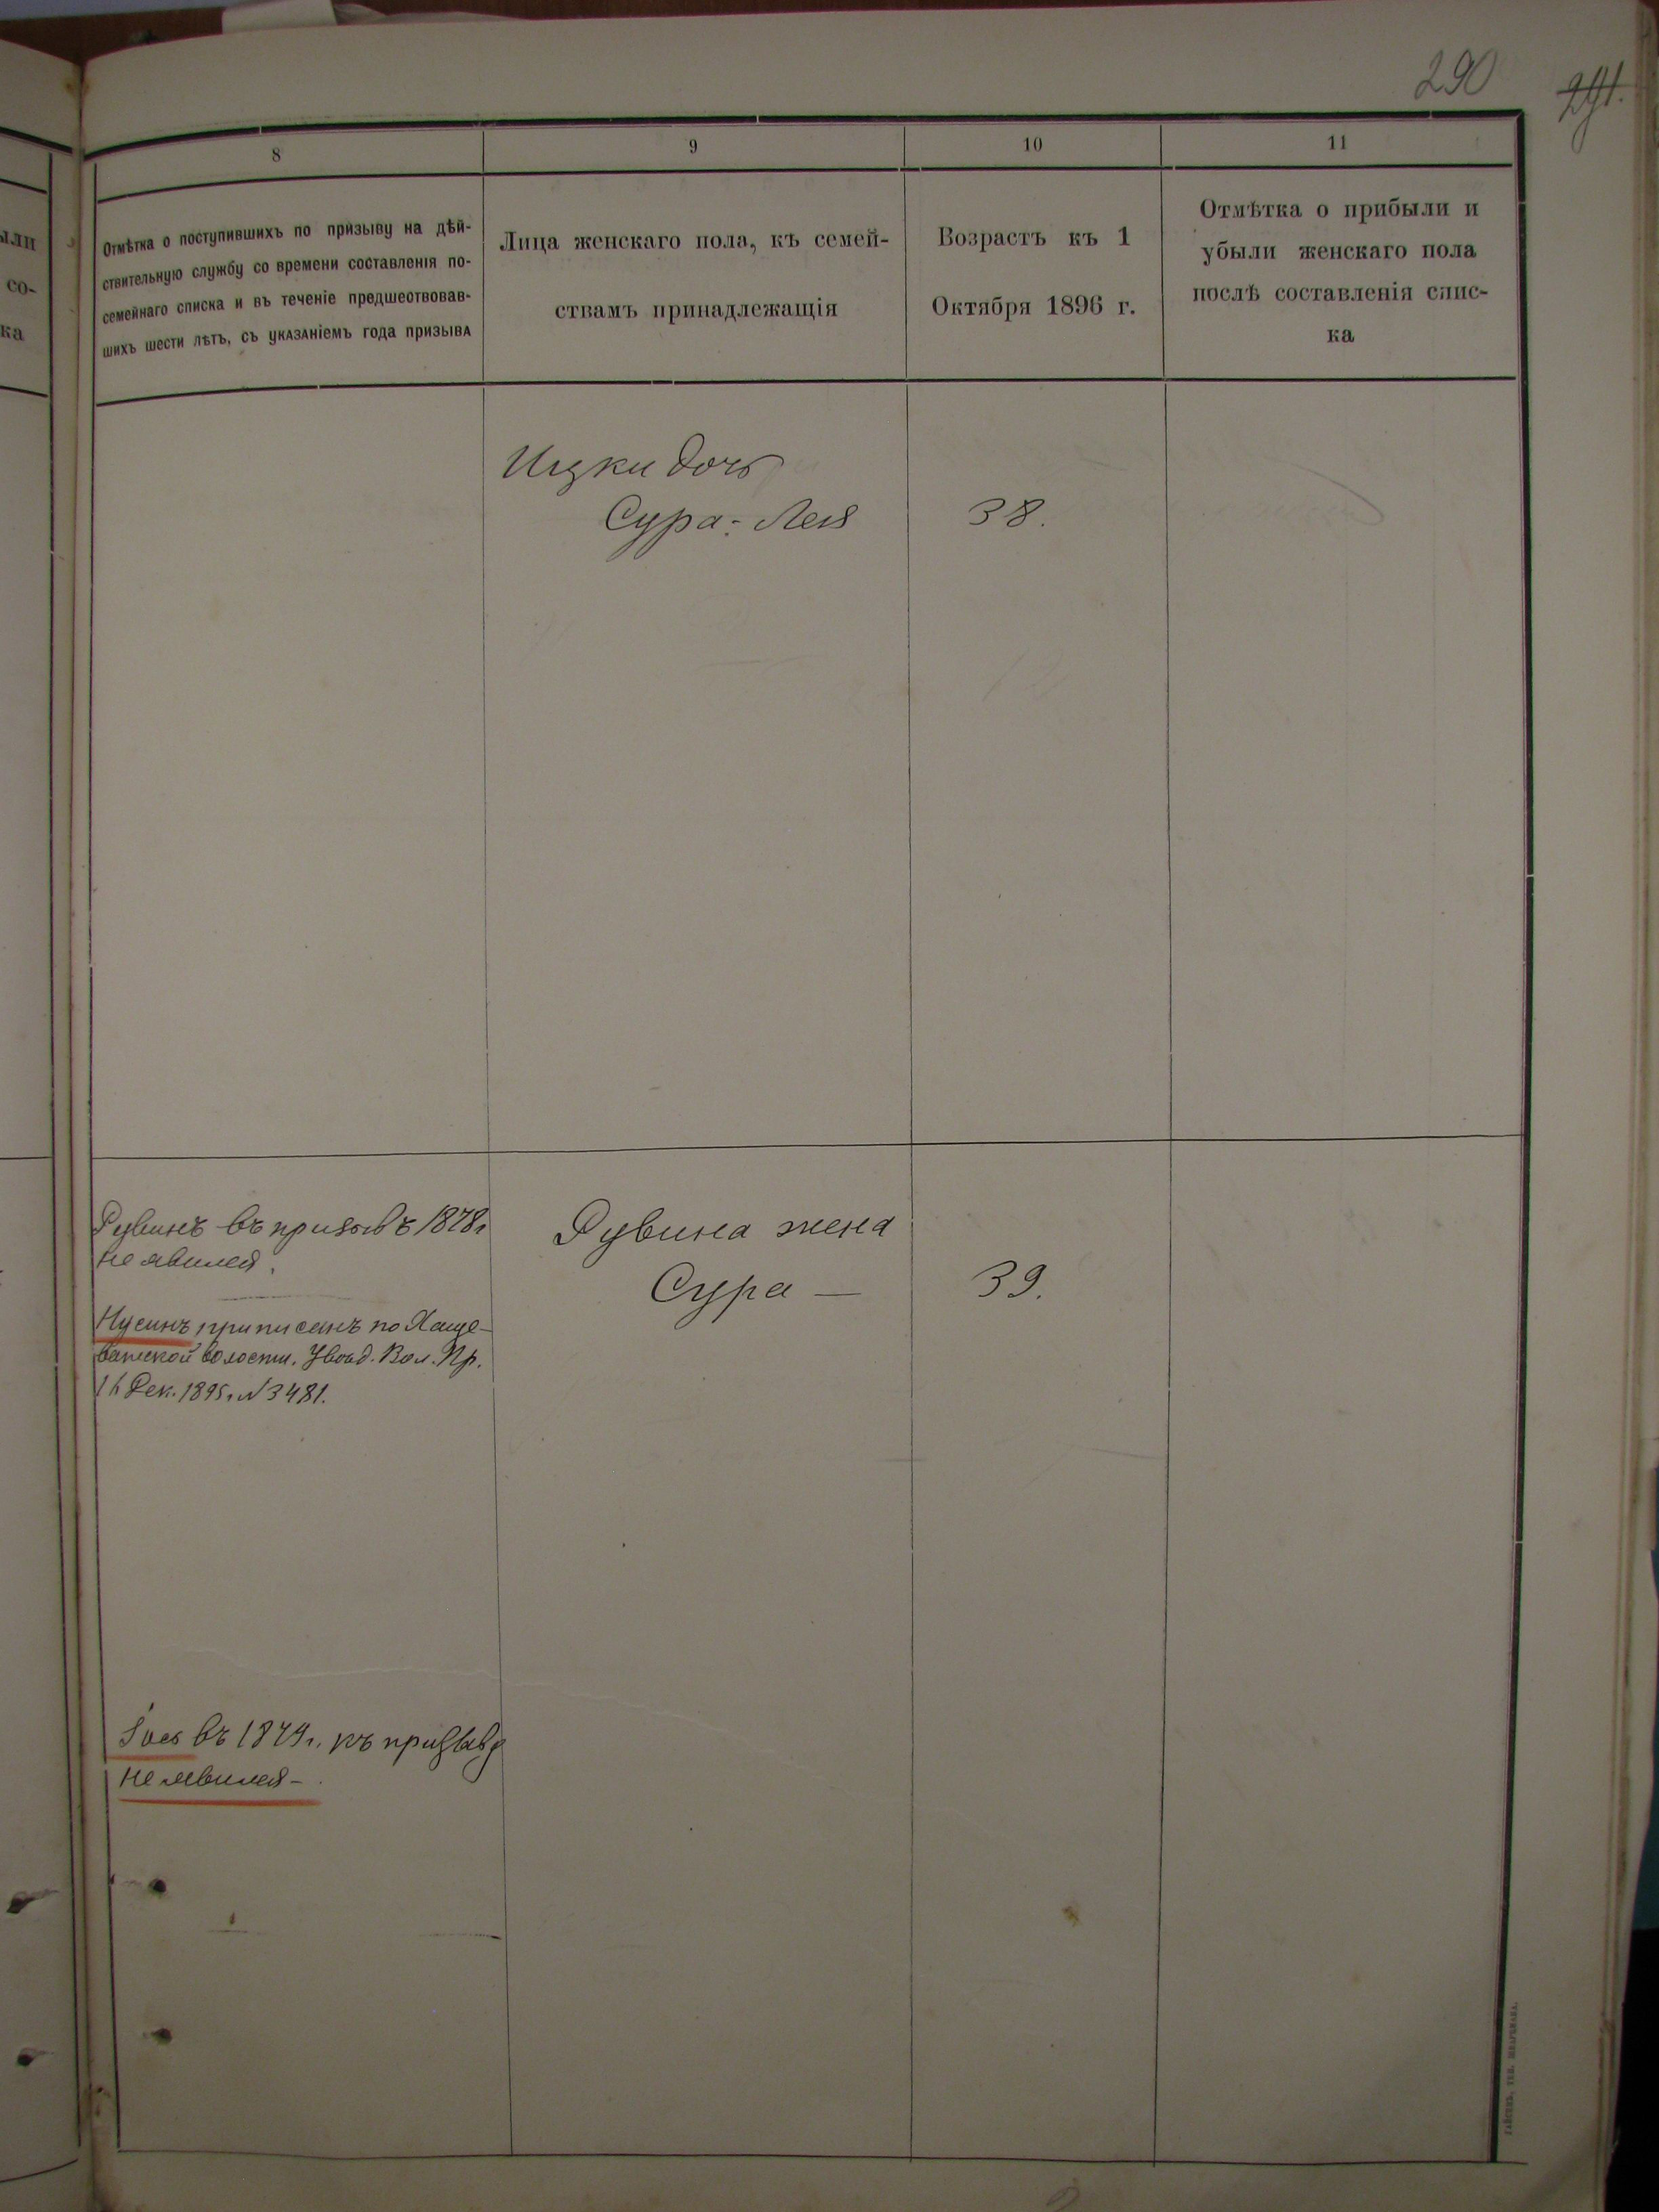 290
291.
8
9
10
11
Отмѣтка о поступившихъ по призыву на дѣй-
ствительную службу со времени составленія по-
семейнаго списка и въ теченіе предшествовав-
шихъ шести лѣтъ, съ указаніемъ года призыва
Лица женскаго пола, къ семей-
ствамъ принадлежащія
Возрастъ къ 1
Октября 1896 г.
Отмѣтка о прибыли и
убыли женскаго пола
послѣ составленія спис-
ка
ыли
со-
ка
Ицки дочь
Сура-Лея
38.
Рувинъ въ призывъ 1878г
не явился.
Рувина жена
Сура —
39.
Нусинъ приписанъ по Хаще-
ватской волости. Увѣд. Вол. Пр.
16 Дек. 1895г. № 3481.
въ 1879г. къ призыву
не явился –